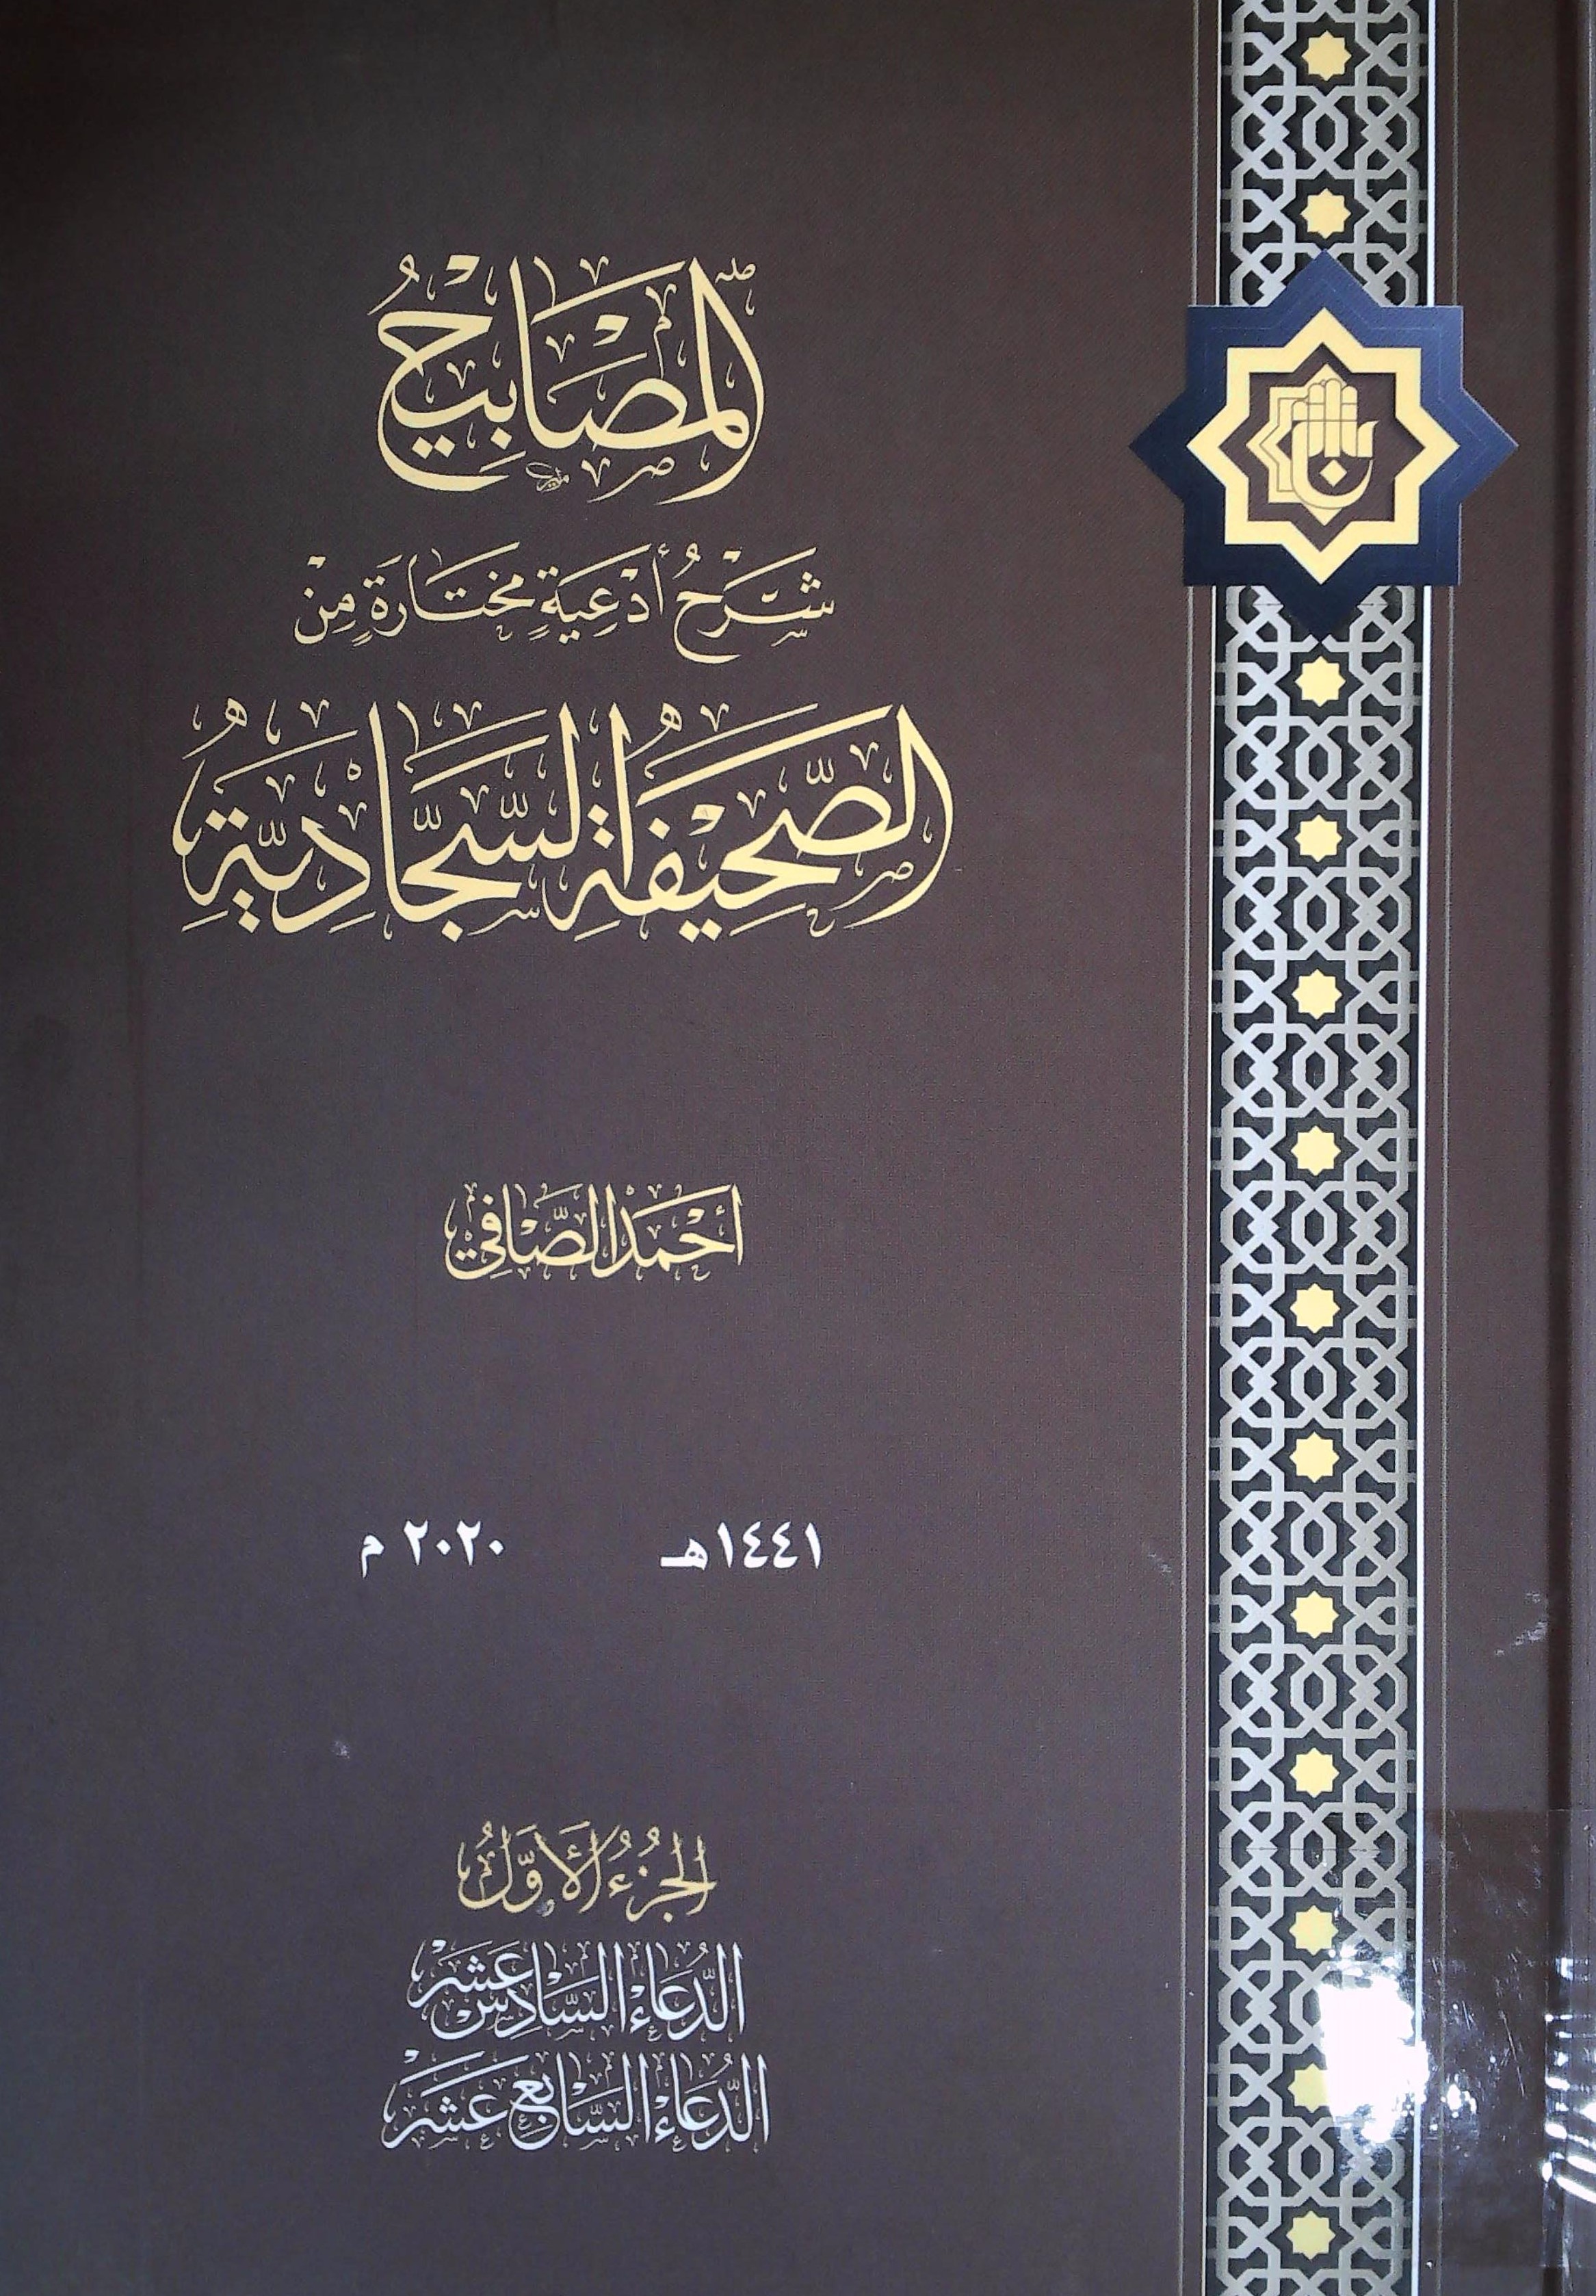 المصَابِيحُ
شَرْحُ أدْعِيَةٍ مختَارَةٍ مِنْ
الصَّحِيْفَةِ السَّجَّادِيَّةِ
أحْمَد الصَّافِي
١٤٤١هـ ٢٠٢٠ م
الجُزءُ الأَوَّلُ
الدُّعَاءُ السَّادِسْ عَشَرْ
الدُّعَاءُ السَّابِعْ عَشَرْ